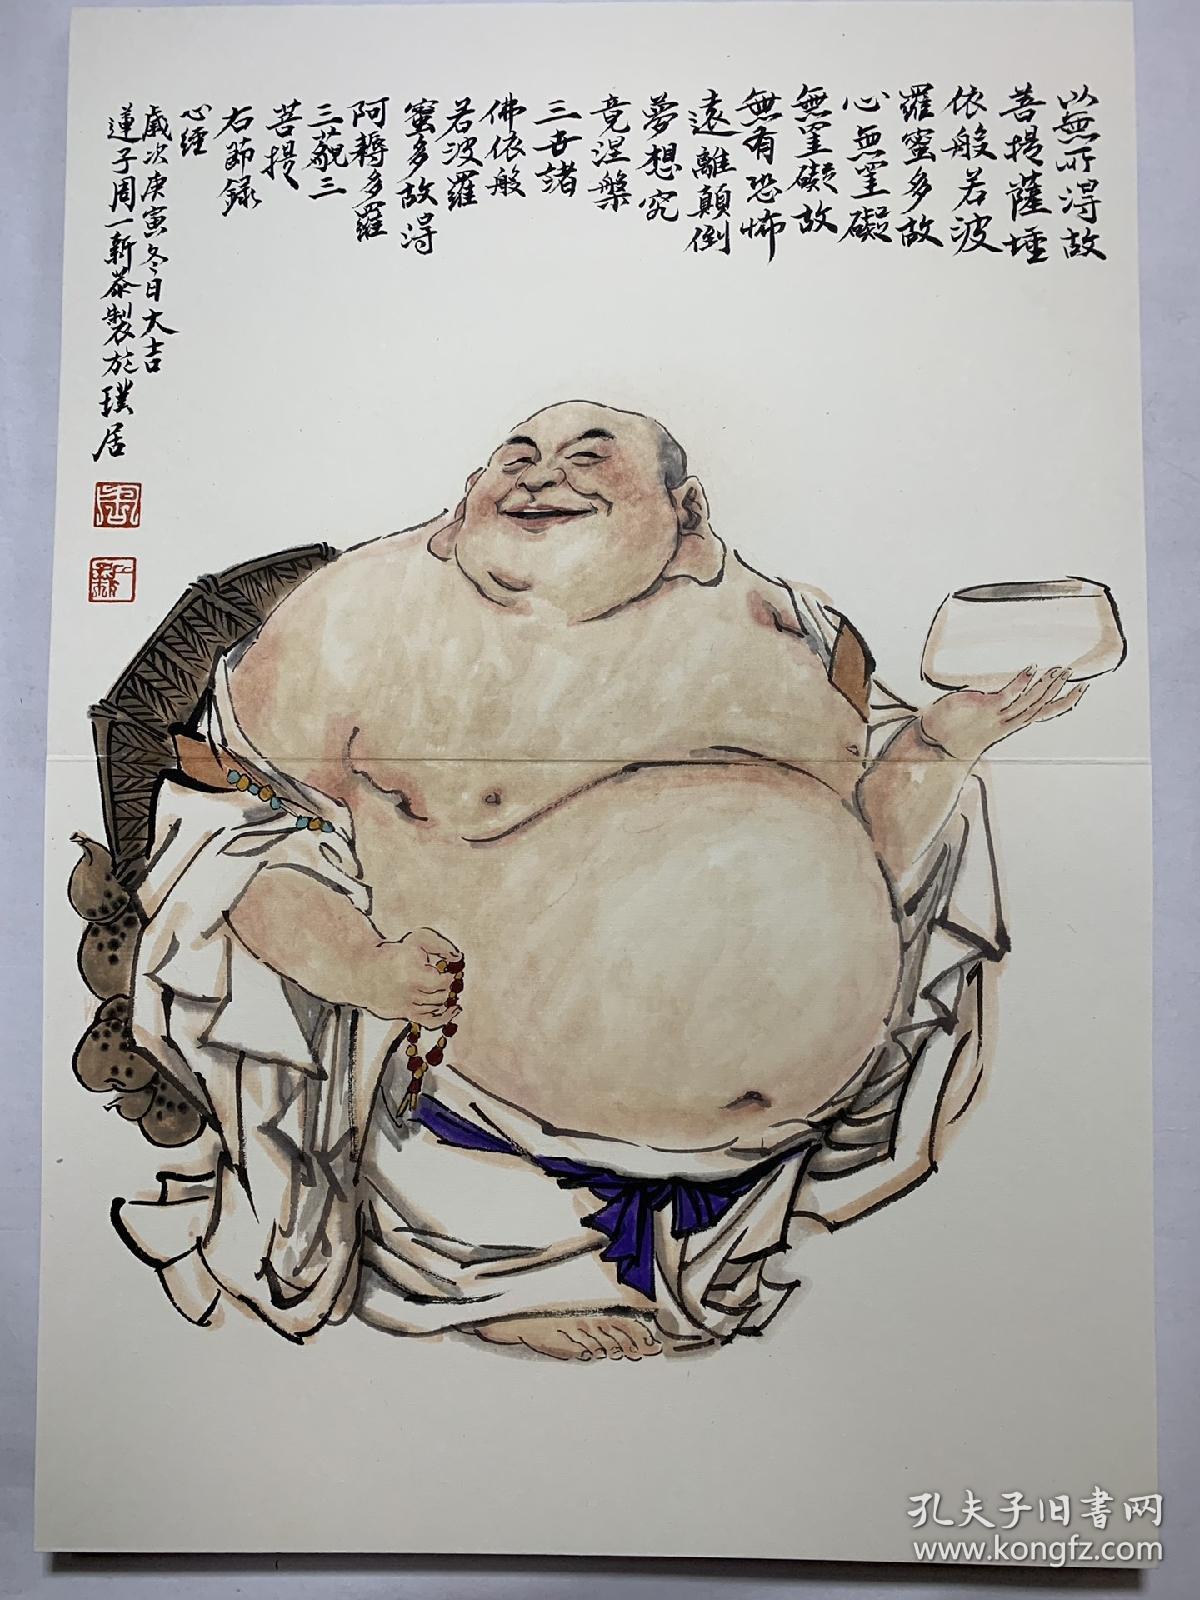 以無所得故
菩提薩埵
依般若波
羅蜜多故
心無罣礙
無罣礙故
無有恐怖
遠離顛倒
夢想究
竟涅槃
三世諸
佛依般
若波羅
蜜多故得
阿耨多羅
三藐三
菩提
右節録
心經
歲次庚寅冬日大吉
蓮子周一新恭製於璞居
孔夫子旧书网
www.kongfz.com